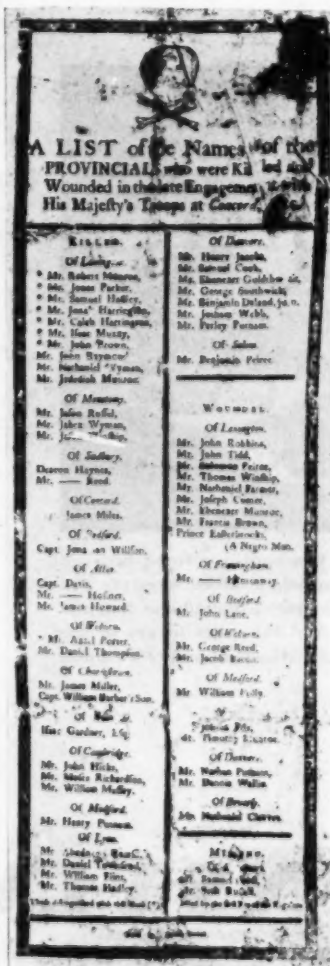 A LIST of the Names of the
PROVINCIALS who were Killed and
Wounded in the late Engagement with
His Majesty's Troops at Concord,
KILLED.
Of Lexington.
* Mr. Robert Munroe,
* Mr. Jonas Parker,
* Mr. Samuel Hadley,
* Mr. Jona Harrington,
* Mr. Caleb Harrington,
* Mr. Isaac Muzzy,
* Mr. John Brown,
Mr. John Raymond
Mr. Nathaniel Wyman,
Mr. Jedediah Munroe.
Of Menotomy.
Mr. Jason Russel,
Mr. Jabez Wyman,
Mr. Winship,
Of Sudbury.
Deacon Haynes,
Mr. —— Reed.
Of Concord.
James Miles.
Of Bedford.
Capt. Jonathan Willson.
Of Acton.
Capt. Davis,
Mr. —— Hosmer,
Mr. James Howard.
Of Woburn.
* Mr. Porter,
Mr. Daniel Thompson.
Of Charlestown.
Mr. James Miller,
Capt. William Barber's Son.
Of
Isaac Gardner, Esq;
Of Cambridge.
Mr. John Hicks,
Mr. Moses Richardson,
Mr. William Massey.
Of Medford.
Mr. Henry Putnam.
Of Lynn.
Mr.
Mr. Daniel Townsend,
Mr. William Flint,
Mr. Thomas Hadley.
Of Danvers.
Mr. Henry Jacobs,
Mr. Samuel Cook,
Mr. Ebenezer Goldthwait,
Mr. George Southwick,
Mr. Benjamin Daland, jun.
Mr. Jotham Webb,
Mr. Perley Putnam.
Of Salem.
Mr. Benjamin Peirce.
WOUNDED.
Of Lexington.
Mr. John Robbins,
Mr. John Tidd,
Mr. Solomon Peirce,
Mr. Thomas Winship,
Mr. Nathaniel Farmer,
Mr. Joseph Comee,
Mr. Ebenezer Munroe,
Mr. Francis Brown,
Prince Easterbrooks,
(A Negro Man.
Of Framingham.
Mr. —— Hemenway.
Of Bedford.
Mr. John Lane.
Of Woburn.
Mr. George Reed,
Mr. Jacob Bacon.
Of Medford.
Mr. William Polly.
Of
Mr. Timothy
Of Danvers.
Mr. Nathan Putnam,
Mr. Dennis Wallis.
Of Beverly.
Mr. Nathaniel Cleaves.
MISSING.
Mr. Samuel
Mr. Seth Russell.